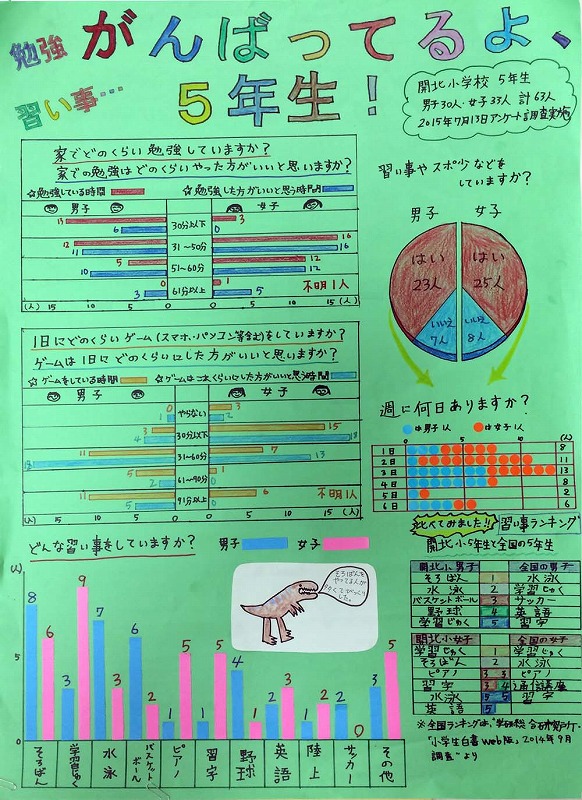 勉強 がんばってるよ、
習い事… 5年生！
開北小学校 5年生
男子30人・女子33人 計63人
2015年7月13日アンケート調査実施
家でどのくらい勉強していますか？
家での勉強はどのくらいやった方がいいと思いますか？
☆勉強している時間 ☆勉強した方がいいと思う時間
男子 女子
13 6 30分以下 3 0
12 11 31〜50分 16 16
5 10 51〜60分 12 12
0 3 61分以上 1 5
不明1人
(人) 15 10 5 0 0 5 10 15 (人)
習い事やスポ少などを
していますか？
男子 女子
はい はい
23人 25人
いいえ いいえ
7人 8人
1日にどのくらいゲーム(スマホ・パソコン等含む)をしていますか？
ゲームは1日にどのくらいにした方がいいと思いますか？
☆ゲームをしている時間 ☆ゲームはこれくらいにした方がいいと思う時間
男子 女子
0 1 やらない 3 2
3 4 30分以下 15 18
11 31〜60分 7 13
5 2 61〜90分 1 0
11 5 91分以上 6 0
不明1人
(人) 15 10 5 0 0 5 10 15 (人)
週に何日ありますか？
＝男子1人 ＝女子1人
0 5 10 (人)
1日 8
2日 11
3日 13
4日 8
5日 2
6日 6
どんな習い事をしていますか？ 男子 女子
(人)
5
0
8 6 3 9 7 3 6 2 1 5 1 5 4 1 2 3 1 2 2 0 3 5
そろばん 学習じゅく 水泳 バスケットボール ピアノ 習字 野球 英語 陸上 サッカー その他
そろばんを
やってる人が
多くてびっくり
した。
比べてみました!! 習い事ランキング
開北小5年生と全国の5年生
開北小男子 全国の男子
そろばん 1 水泳
水泳 2 学習じゅく
バスケットボール 3 サッカー
野球 4 英語
学習じゅく 5 習字
開北小女子 全国の女子
学習じゅく 1 学習じゅく
そろばん 2 水泳
ピアノ 3 3 ピアノ
習字 3 4 通信講座
水泳 5 5 習字
英語 5
※全国ランキングは、"学研総合研究所".
"小学生白書web版" 2014年9月
調査"より